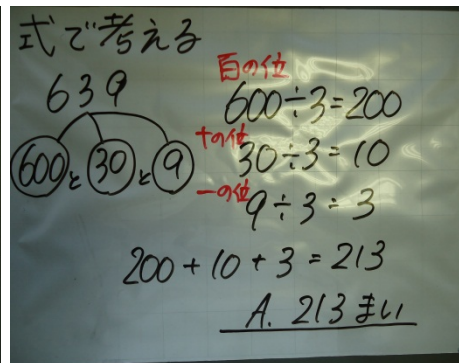 式で考える
639
600と30と9
百の位
600÷3=200
十の位
30÷3=10
一の位
9÷3=3
200+10+3=213
A. 213まい